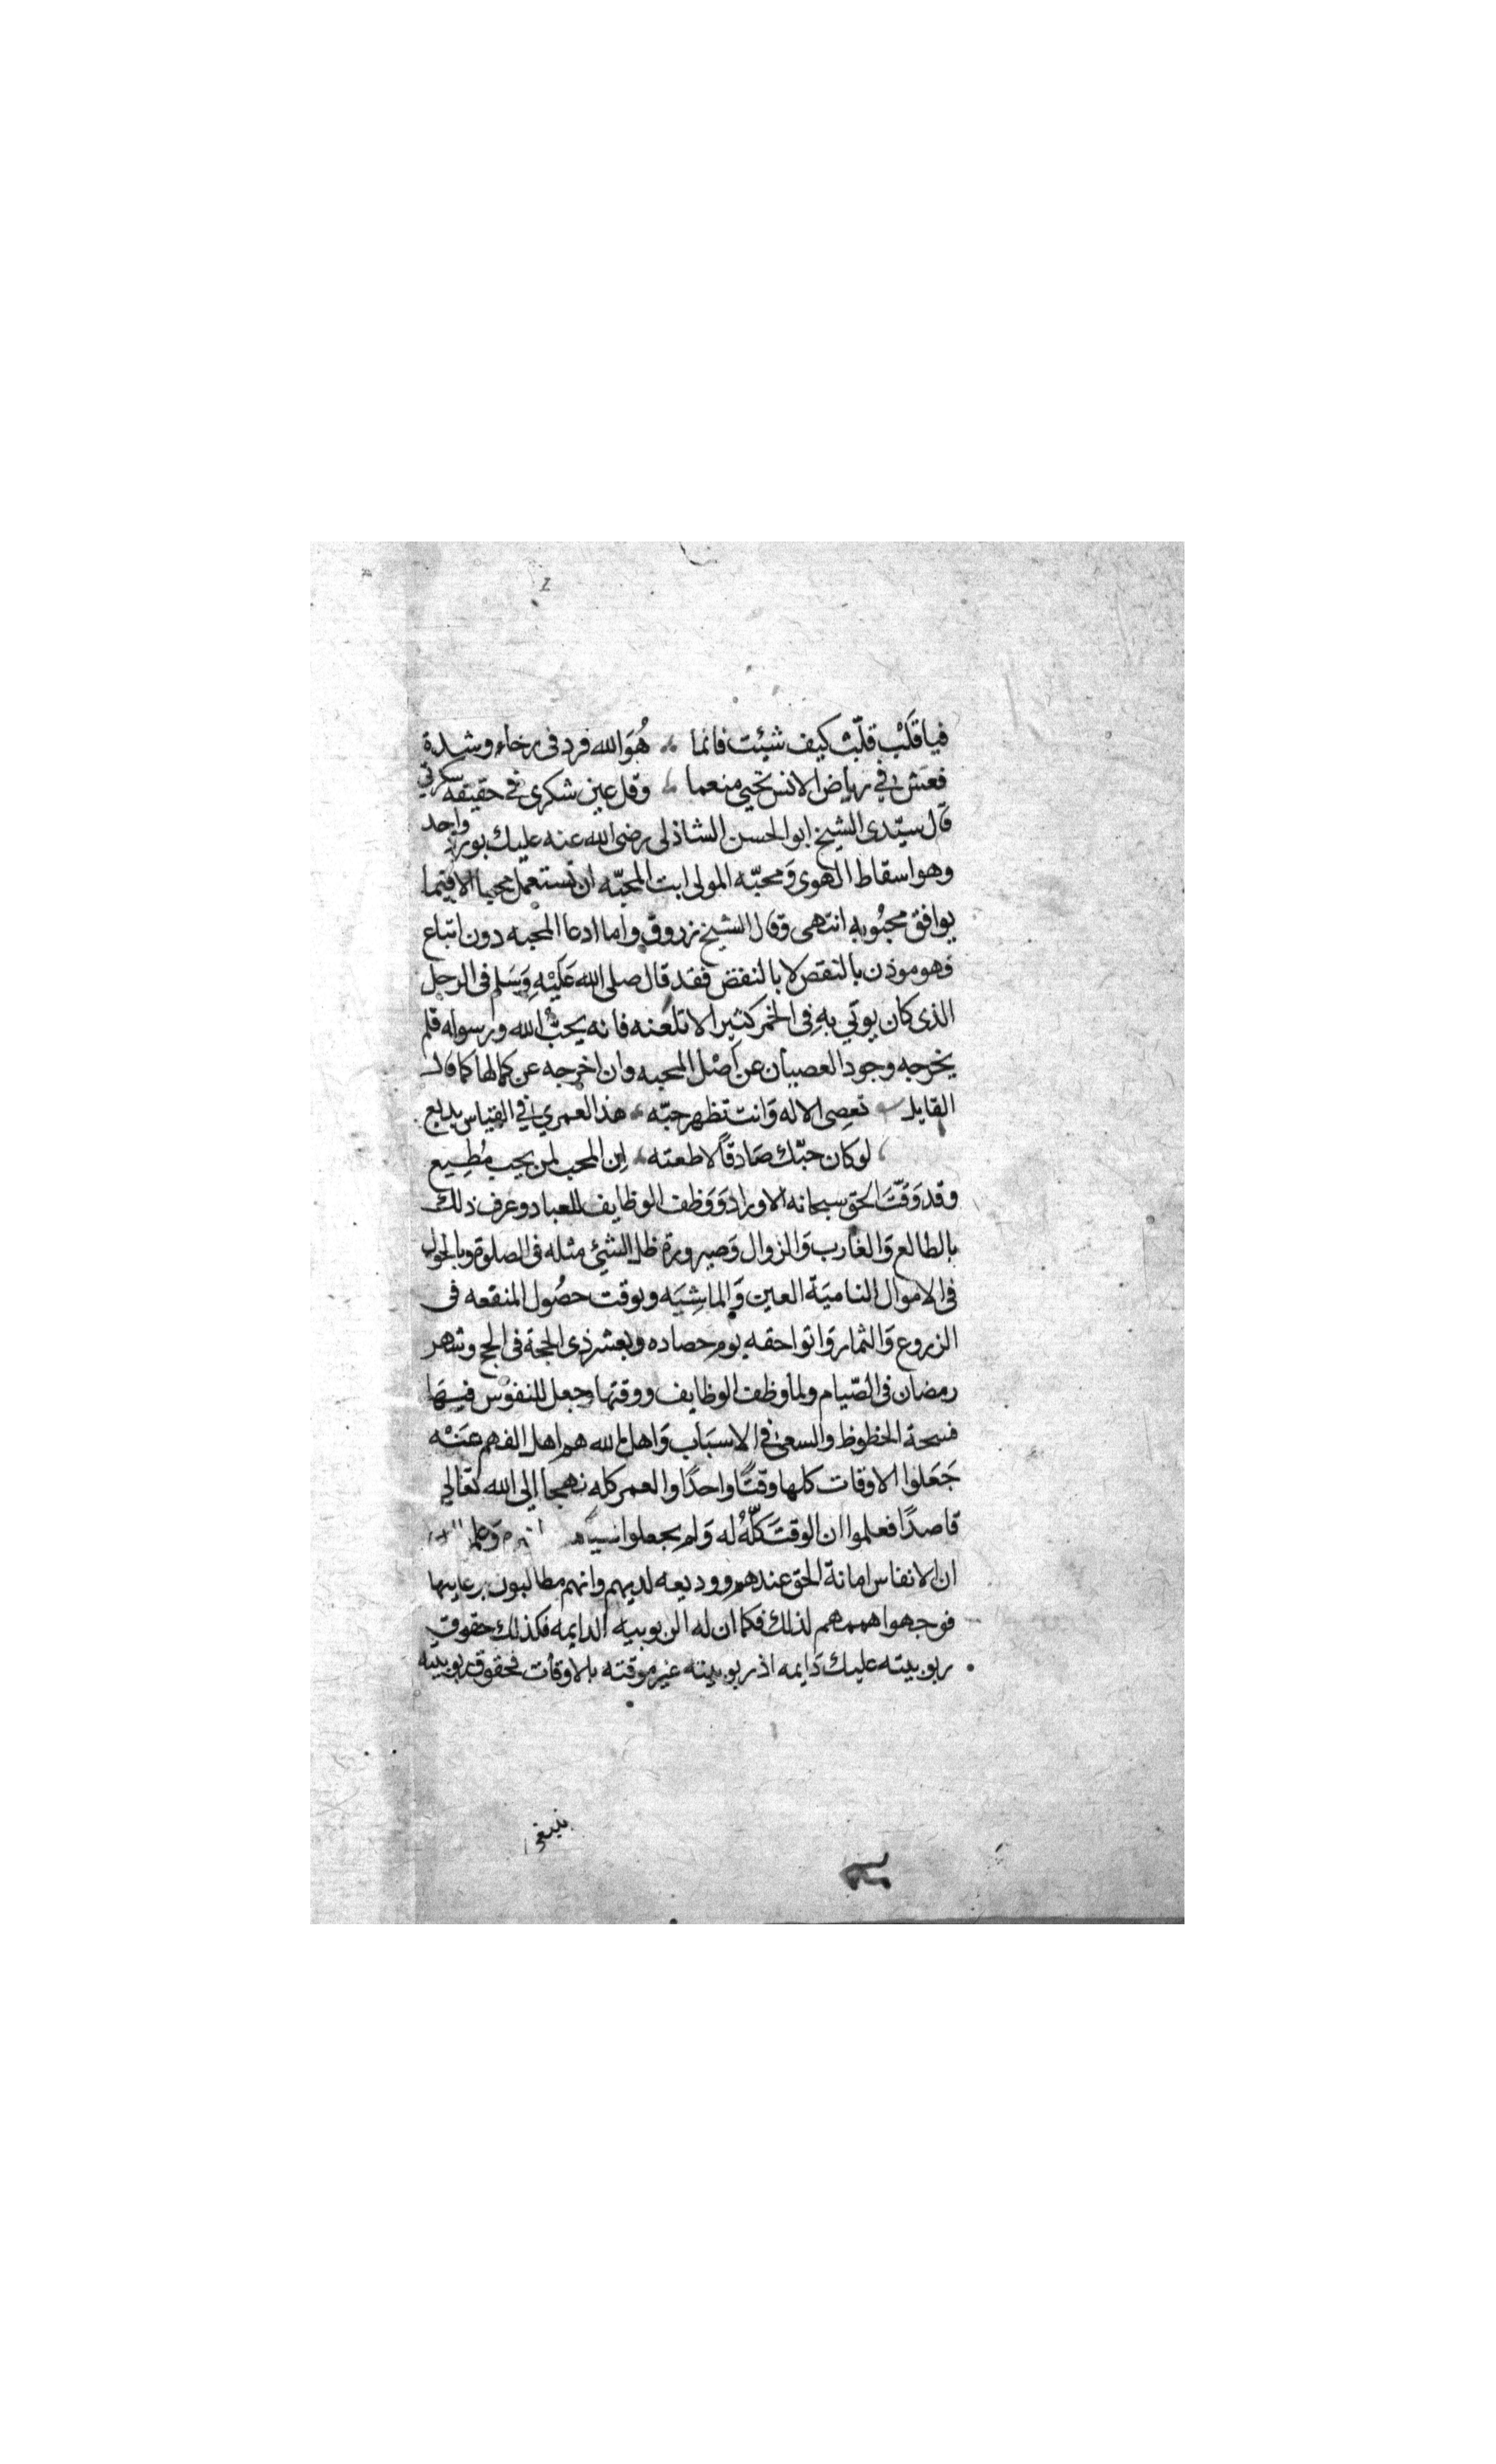 فياقَلْبِ قلّبْ كيف شيئت فانما هُوَالله فرد فى رخاء وشدة
فعَش في رياض الانس تحيى منعما وقل عين شكرى في حقيقه سكرتي
قال سيّدى الشيخ ابو الحسن الشاذلى رضى الله عنه عليك بورد واحد
وهو اسقاط الهوى وَمحبّه المولى ابت المحبّه ان تستعمل محبا الا فيما
يوافق محبُوبه انتهى وقال الشيخ زروق واما ادعا المحبه دون اتباع
فهو موذن بالنقص لا بالنقض فقد قال صلى الله عَليْهِ وَسَلم فى الرجل
الذى كان يوتي بهِ فِى الخمر كثيرا لا تلعنه فانه يحبّ الله ورسوله فلم
يخرجه وجود العصيان عن اَصْل المحبه وان اخرجه عن كمالها كما قال
القايل تعصِى الاله وَانت تظهر حبّه هذا لعمري في القياس بديع
لو كان حبّك صَادقًا لاطعته اِن المحب لمن يحب مُطِيع
وقد وَقّتَ الحق سبحانه الاوراد وَوَظف الوظايف للعباد وعرف ذلك
بالطالع وَالغارب وَالزوال وَصيرورة ظل الشئ مثله فى الصلوة وبالحول
فى الاموال الناميَة العين وَالماشِيَه وبوقت حصُول المنفعه فى
الزروع وَالثمار وَاتوا حقه يوم حصاده وبعشر ذى الحجة فى الحج وشهر
رمضان فى الصّيام ولما وظف الوظايف ووقتها جعل للنفوْس فيهَا
فسحة الحظوظ والسعى في الاسبَاب وَاهل الله هم اهل الفهم عَنْه
جَعَلوا الاوقات كلها وقتًا واحدًا والعمر كله نهجا الى الله تعَالي
قاصدًا فعلموا ان الوقتَ كلّهُ له وَلم يجعلوا وَعلم
ان الانفاس امانة الحق عندهم ووديعه لديهم وانهم مطالبون برعايتها
فوجهوا هممهم لذلك فكما ان له الربوبيه الدايمه فكذلك حقوق
ربوبيته عليك دَايمه اذ ربوبيته غير موقته بالاوقات فحقوق ربوبيته
ينبغى